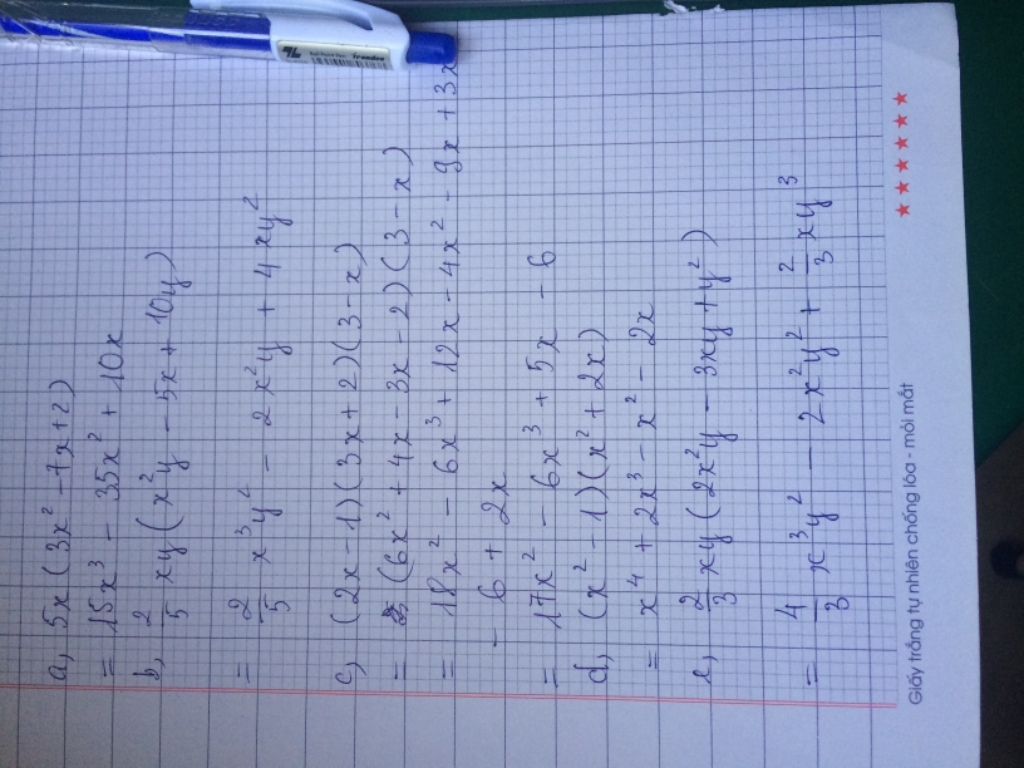 a, 5x (3x² - 7x + 2)
= 15x³ - 35x² + 10x
b, 2/5 xy (x²y - 5x + 10y)
= 2/5 x³y² - 2x²y + 4xy²
c, (2x - 1)(3x + 2)(3 - x)
= (6x² + 4x - 3x - 2)(3 - x)
= 18x² - 6x³ + 12x - 4x² - 9x + 3x
- 6 + 2x
= 17x² - 6x³ + 5x - 6
d, (x² - 1)(x² + 2x)
= x⁴ + 2x³ - x² - 2x
e, 2/3 xy (2x²y - 3xy + y²)
= 4/3 x³y² - 2x²y² + 2/3 xy³
Giấy trắng tự nhiên chống lóa - mỏi mắt